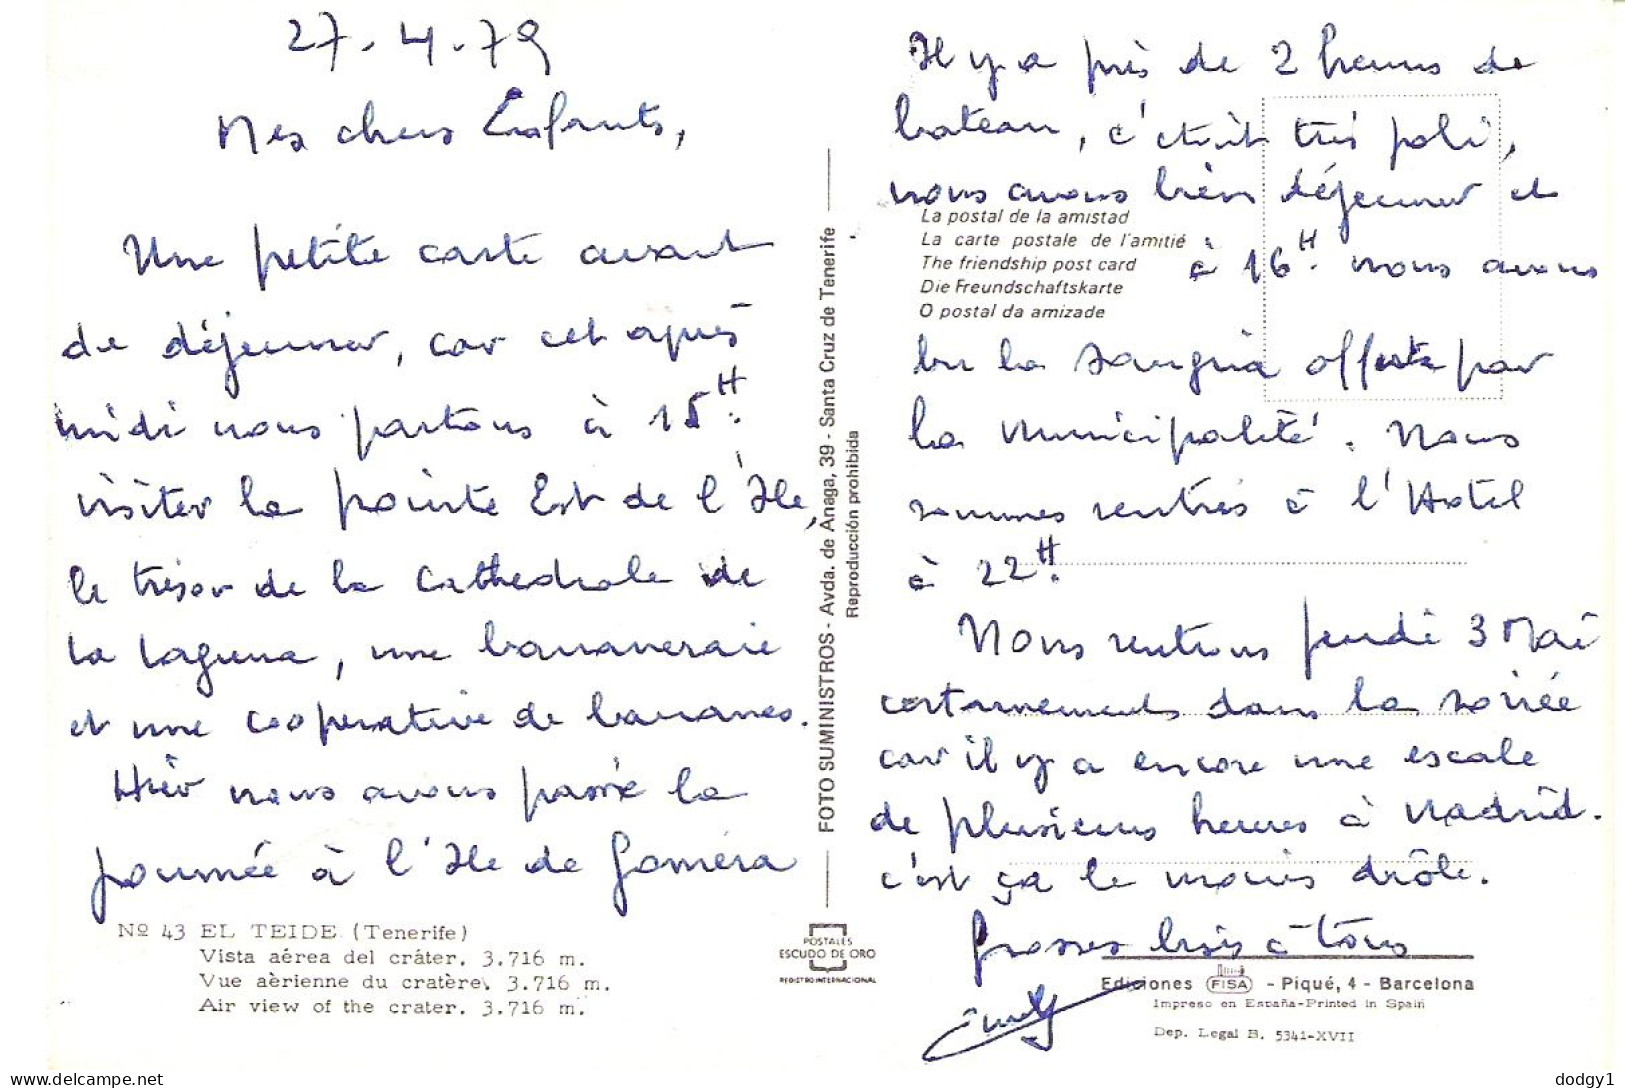 27.4.79
Mes chers Enfants,
Une petite carte avant
de déjeuner, car cet après
midi nous partons à 15H.
visiter la pointe Est de l'Ile,
le trésor de la Cathédrale de
La Laguna, une bananeraie
et une coopérative de bananes.
Hier nous avons passé la
journée à l'Ile de Goméra
Nº 43 EL TEIDE (Tenerife)
Vista aérea del cráter. 3.716 m.
Vue aèrienne du cratère. 3.716 m.
Air view of the crater. 3.716 m.
FOTO SUMINISTROS - Avda. de Anaga, 39 - Santa Cruz de Tenerife
Reproducción prohibida
POSTALES
ESCUDO DE ORO
REGISTRO INTERNACIONAL
Il y a près de 2 heures de
bateau, c'était très joli,
nous avons bien déjeuner et
La postal de la amistad
La carte postale de l'amitié
The friendship post card
Die Freundschaftskarte
O postal da amizade
à 16H. nous avons
bu la sangria offerte par
la Municipalité. Nous
sommes rentrés à l'Hotel
à 22H.
Nous rentrons jeudi 3 Mai
certainement dans la soirée
car il y a encore une escale
de plusieurs heures à Madrid.
c'est ça le moins drôle.
Grosses bises à tous
Ediciones FISA - Piqué, 4 - Barcelona
Impreso en España-Printed in Spain
Dep. Legal B. 5341-XVII
delcampe.net
dodgy1